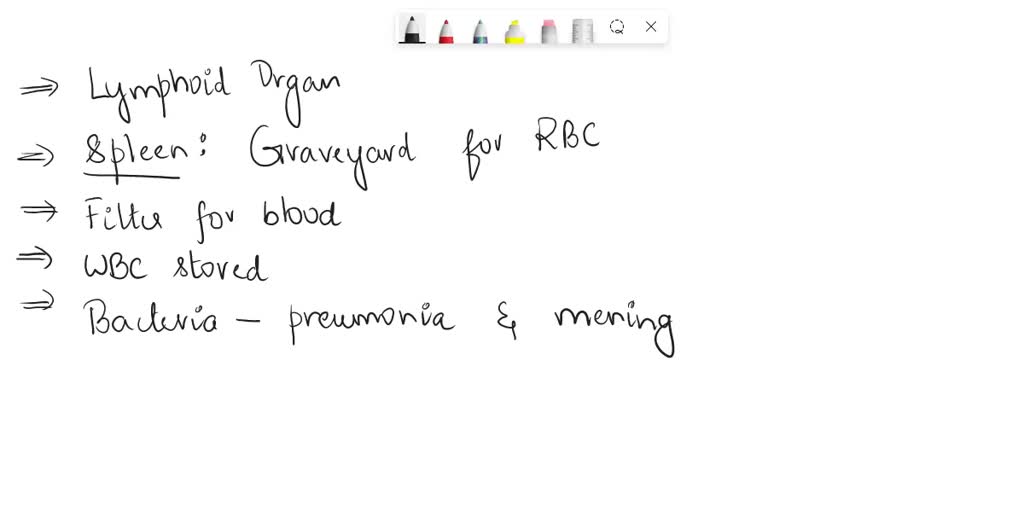 ⇒ Lymphoid Organ
⇒ Spleen : Graveyard for RBC
⇒ Filter for blood
⇒ WBC stored
⇒ Bacteria – pneumonia & mening